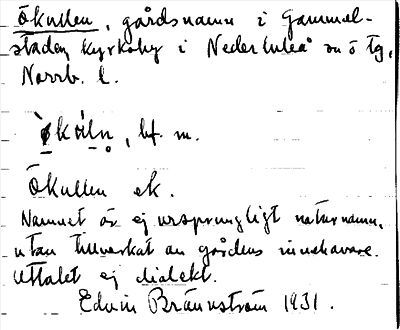 Ökullen, gårdsnamn i Gammel-
staden, kyrkoby i Nederluleå sn ö tg,
Norrb. l.
bf. m.
Ökullen ek.
Namnet är ej ursprungligt naturnamn,
utan tillverkat av gårdens innehavare.
Uttalet ej dialekt.
Edvin Brännström 1931.